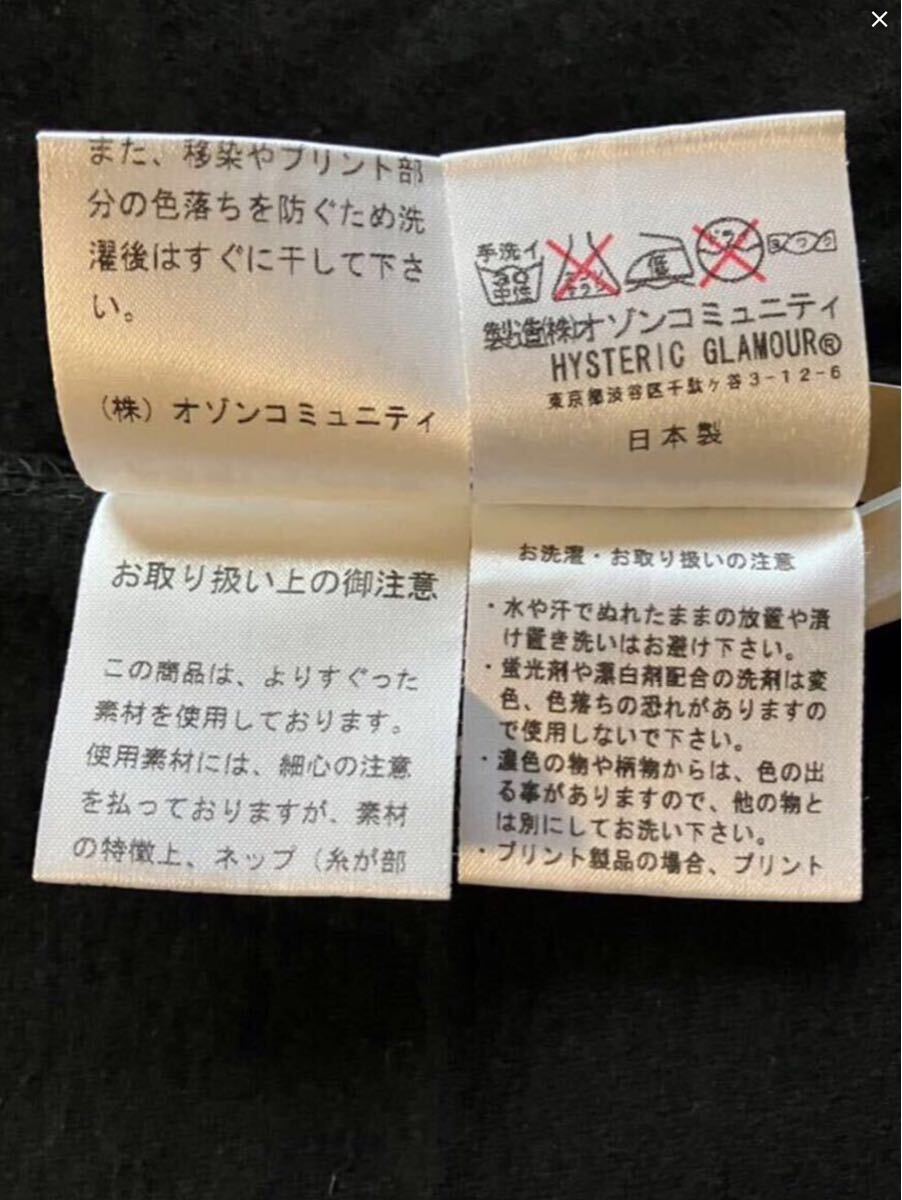 また、移染やプリント部
分の色落ちを防ぐため洗
濯後はすぐに干して下さ
い。
(株) オゾンコミュニティ
手洗イ
中性
低
製造(株)オゾンコミュニティ
HYSTERIC GLAMOUR®
東京都渋谷区千駄ヶ谷3-12-6
日本製
お取り扱い上の御注意
この商品は、よりすぐった
素材を使用しております。
使用素材には、細心の注意
を払っておりますが、素材
の特徴上、ネップ(糸が部
お洗濯・お取り扱いの注意
・水や汗でぬれたままの放置や漬
け置き洗いはお避け下さい。
・蛍光剤や漂白剤配合の洗剤は変
色、色落ちの恐れがありますの
で使用しないで下さい。
・濃色の物や柄物からは、色の出
る事がありますので、他の物と
は別にしてお洗い下さい。
・プリント製品の場合、プリント